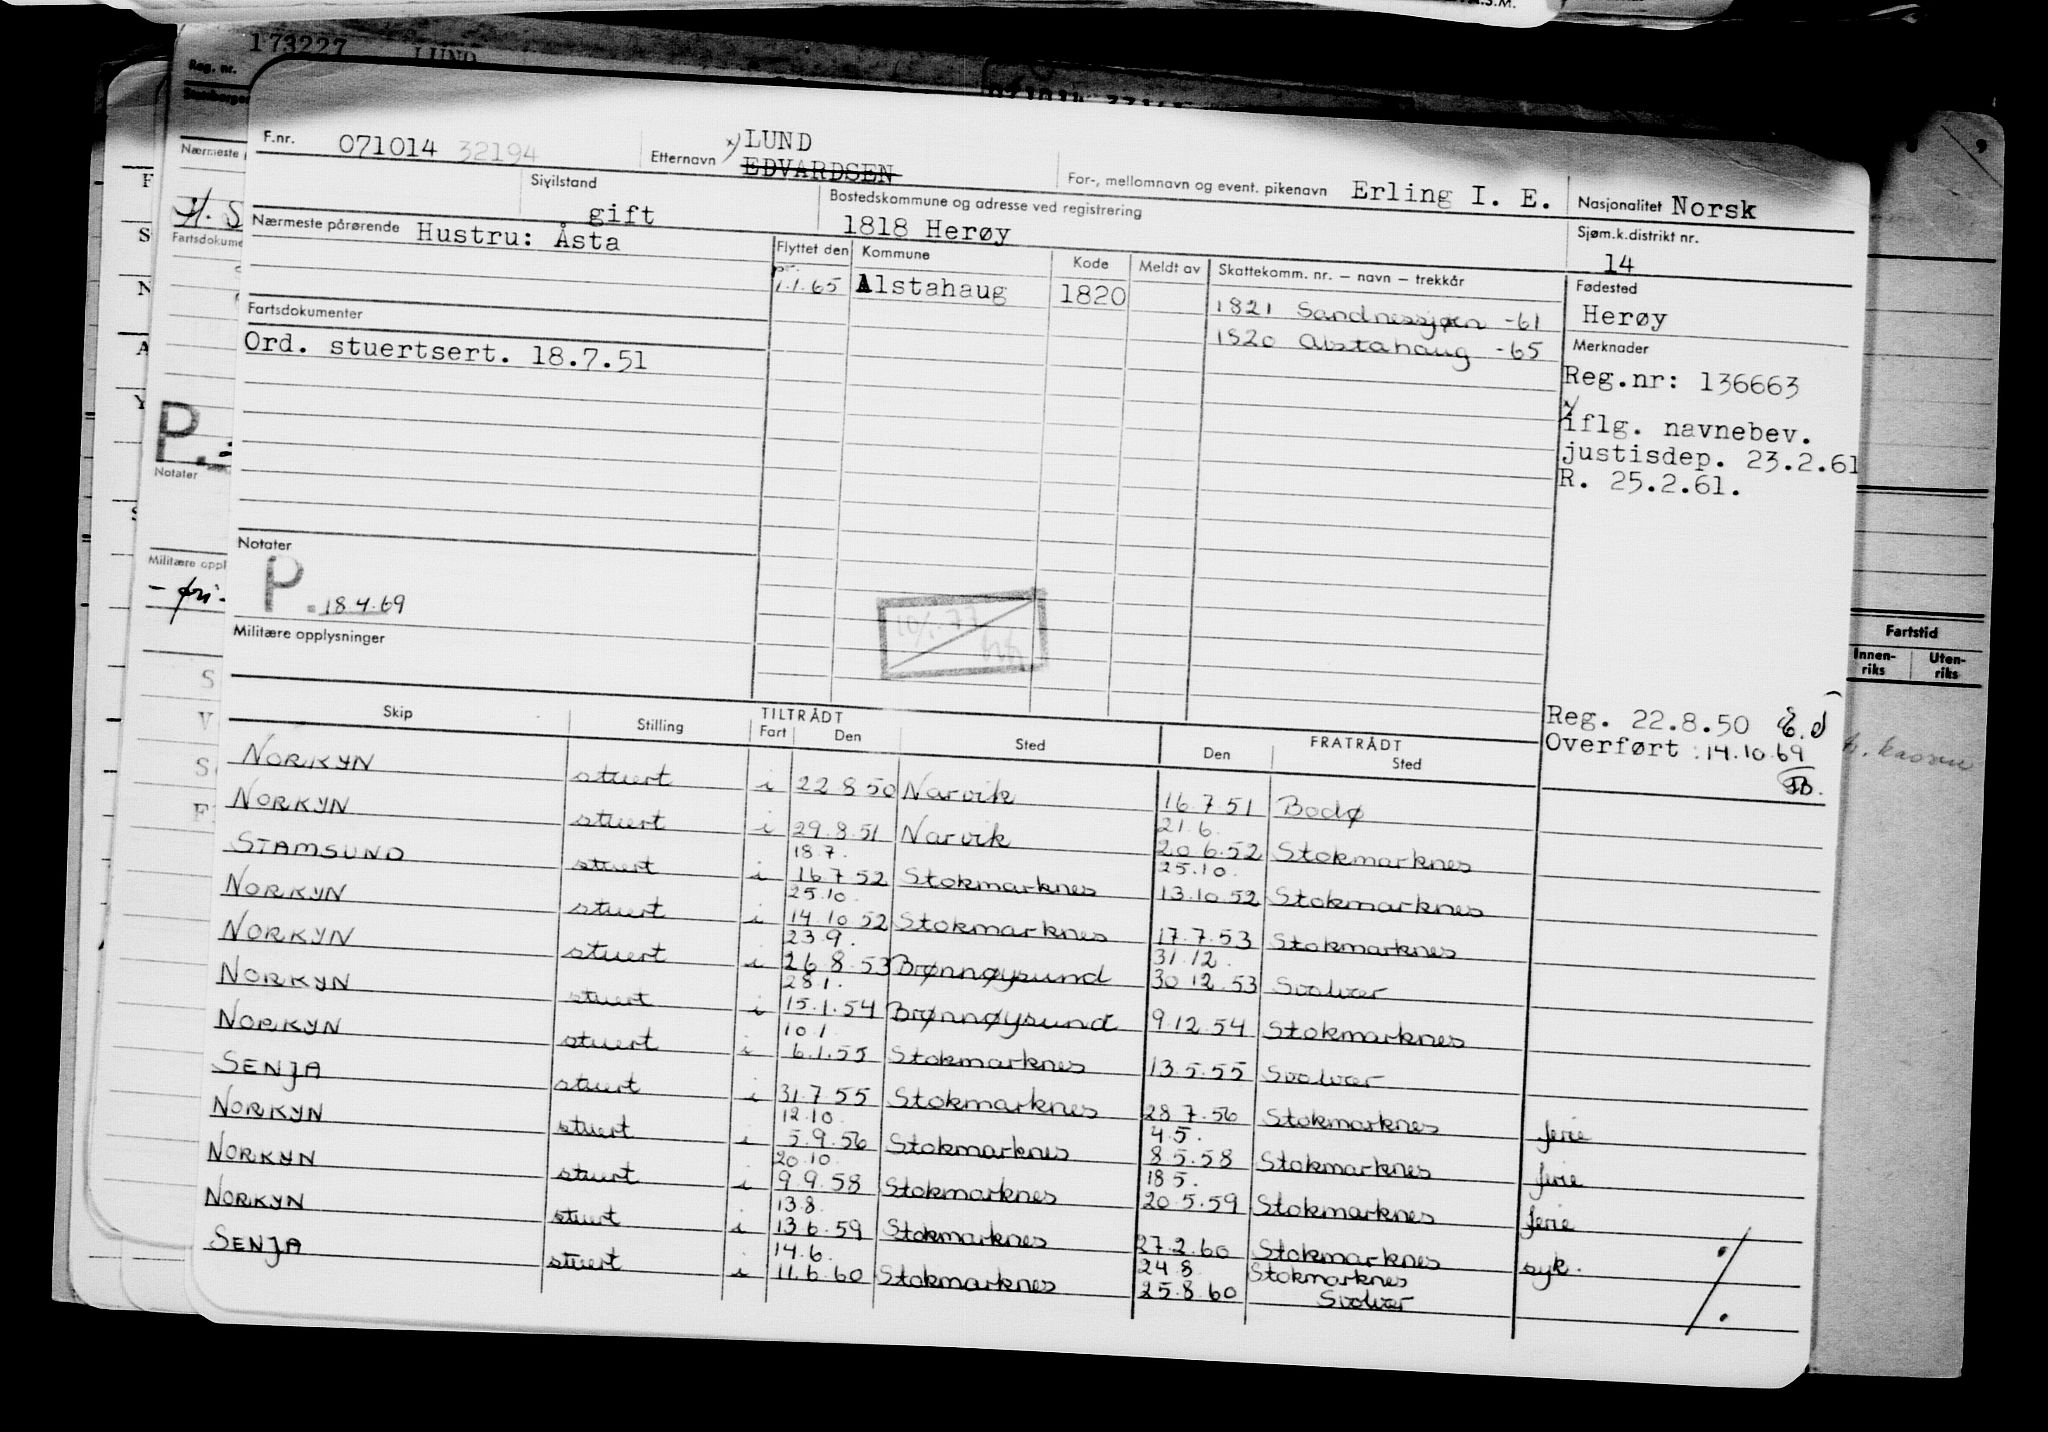 173227 LUND
Reg. nr.
F.nr. 071014 32194 Etternavn x) LUND
EDVARDSEN
For-, mellomnavn og event. pikenavn Erling I. E. Nasjonalitet Norsk
Sivilstand gift Bostedskommune og adresse ved registrering 1818 Herøy Sjøm.k.distrikt nr. 14
Nærmeste pårørende Hustru: Åsta
Flyttet den Kommune Kode Meldt av Skattekomm. nr. – navn – trekkår Fødested
1.1.65 Alstahaug 1820 1821 Sandnessjøen -61 Herøy
1820 Alstahaug -65 Merknader
Fartsdokumenter
Ord. stuertsert. 18.7.51
Reg.nr: 136663
x/
iflg. navnebev.
justisdep. 23.2.61
R. 25.2.61.
Notater
P. 18.4.69
Militære opplysninger
Reg. 22.8.50
Overført: 14.10.69
Skip Stilling TILTRÅDT Fart Den Sted FRATRÅDT Den Sted
NORKYN stuert i 22.8.50 Narvik 16.7.51 Bodø
NORKYN stuert i 29.8.51 Narvik 21.6. 20.6.52 Stokmarknes
STAMSUND stuert i 18.7. 16.7.52 Stokmarknes 25.10. 13.10.52 Stokmarknes
NORKYN stuert i 25.10. 14.10.52 Stokmarknes 17.7.53 Stokmarknes
NORKYN stuert i 23.9. 26.8.53 Brønnøysund 31.12. 30.12.53 Svolvær
NORKYN stuert i 28.1. 15.1.54 Brønnøysund 9.12.54 Stokmarknes
NORKYN stuert i 10.1 6.1.55 Stokmarknes 13.5.55 Svolvær
SENJA stuert i 31.7.55 Stokmarknes 28.7.56 Stokmarknes ferie
NORKYN stuert i 12.10. 5.9.56 Stokmarknes 4.5. 8.5.58 Stokmarknes ferie
NORKYN stuert i 20.10. 9.9.58 Stokmarknes 18.5. 20.5.59 Stokmarknes ferie
NORKYN stuert i 13.8. 13.6.59 Stokmarknes 27.2.60 Stokmarknes syk.
SENJA stuert i 14.6. 11.6.60 Stokmarknes 24.8. 25.8.60 Stokmarknes Svolvær
Nærmeste
Fartsdokume
P.
Notater
Militære oppl
- fri -
Fartstid
Innen-riks Uten-riks